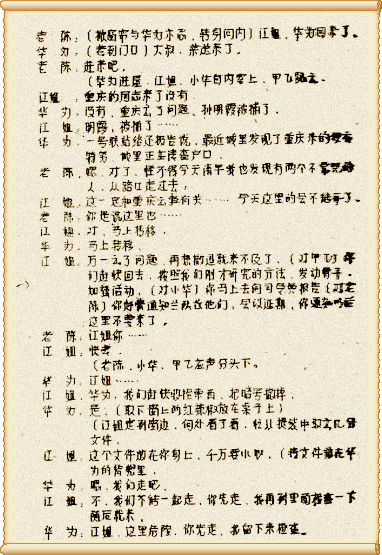 老 陈：（ 窗 与华为 ，转身向内）江姐，华为 来了。
华 为：（走到门口）大叔， 来了。
老 陈：进来吧。
（华为进屋，江姐、小华自内室上，甲飞 。）
江 姐：重庆的同志来了没有
华 为：没有，重庆出了问题，孙明霞被捕了……
江 姐：明霞，被捕了……
华 为：一号联络站还报告说，最近城里发现了重庆来的
特务，城里正在清查户口。
老 陈：嗯，对了，怪不得今天清早我也发现有两个不
人，从路口走过去。
江 姐：这一定和重庆 有关…… 今天这里的会不能开了。
老 陈：你是说这里也……
江 姐：对，马上转移。
华 为：马上转移。
江 姐：万一出了问题，再想撤退就来不及了，（对甲飞）你
们赶快回去，按照我们刚才研究的方法，发动 ，
加强活动，（对小华）你马上去向司令员报告（对老
陈）你 通知兰 他们，会议延期，你通知
这里不要来了。
老 陈：江姐你……
江 姐：快去。
（老陈，小华，甲飞应声分头下。
华 为：江姐……
江 姐：华为，我们赶快收拾东西，把暗号撤掉。
华 为：是，（取下窗上的红辣椒放在桌子上）
（江姐走到窗边，向外看了看，
文件。
江 姐：这个文件放在你身上，千万要小心，（将文件 在华
为的 里。
华 为：嗯，我们走吧。
江 姐：不，我们不能一起走，你先走，我再到里面检查一下
随后就来。
华 为：江姐，这里危险，你先走，我留下来检查。